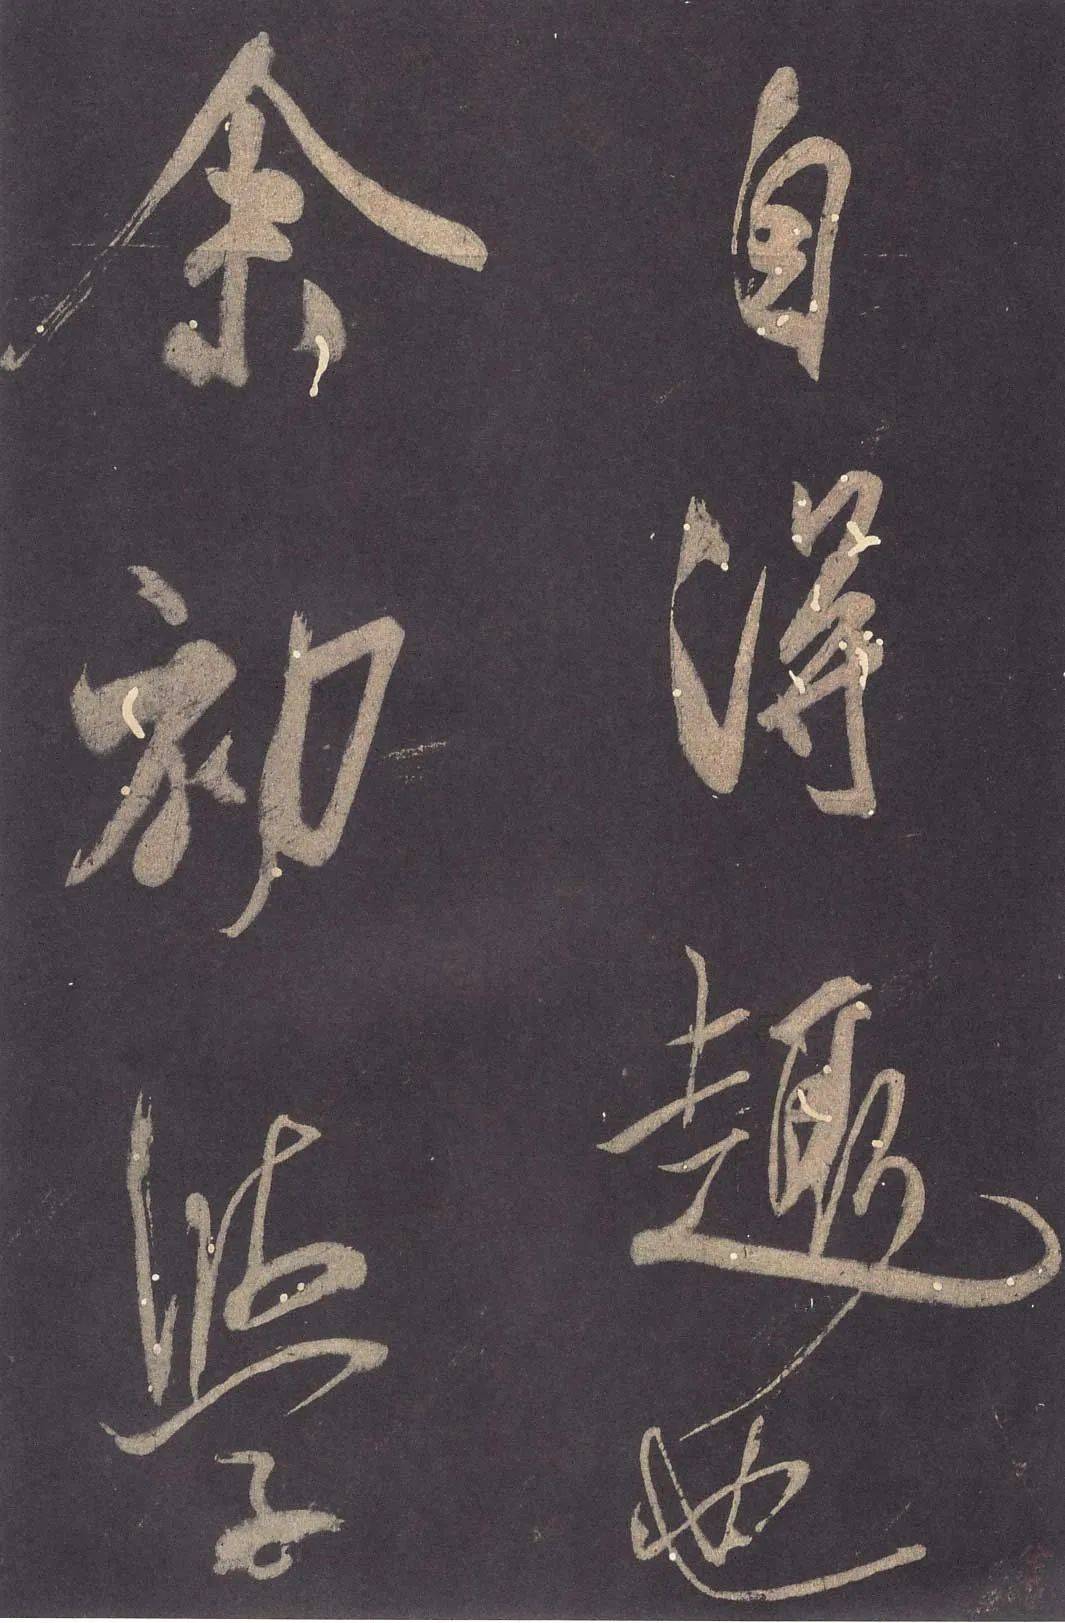 自得趣也
余初学